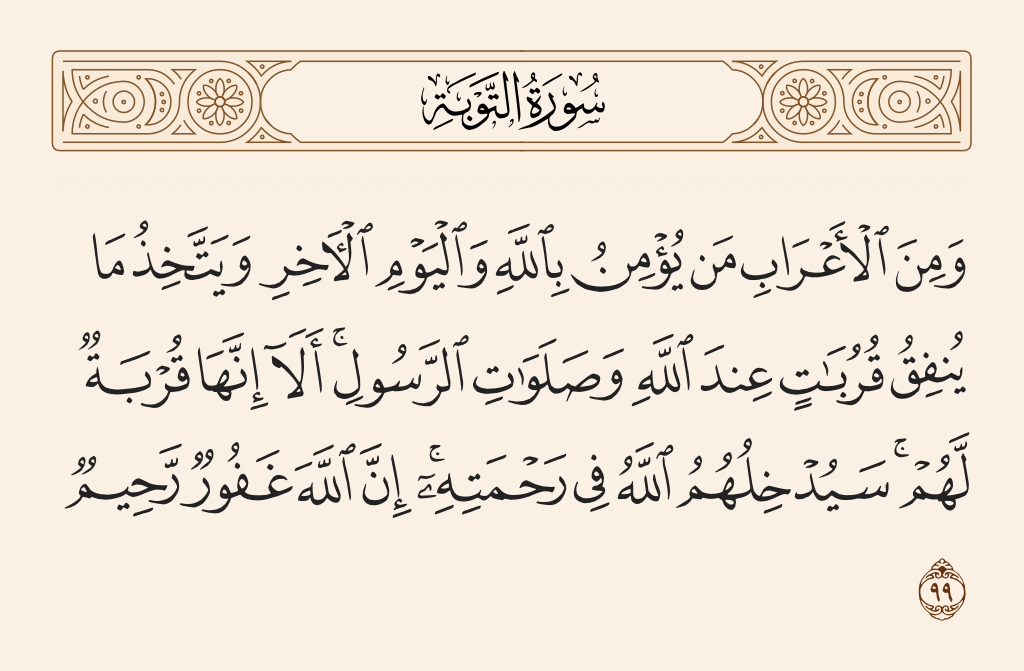 سُورَةُ التَّوْبَةِ
وَمِنَ ٱلْأَعْرَابِ مَن يُؤْمِنُ بِٱللَّهِ وَٱلْيَوْمِ ٱلْـَٔاخِرِ وَيَتَّخِذُ مَا
يُنفِقُ قُرُبَـٰتٍ عِندَ ٱللَّهِ وَصَلَوَٰتِ ٱلرَّسُولِ ۚ أَلَآ إِنَّهَا قُرْبَةٌ
لَّهُمْ ۚ سَيُدْخِلُهُمُ ٱللَّهُ فِى رَحْمَتِهِۦٓ ۚ إِنَّ ٱللَّهَ غَفُورٌ رَّحِيمٌ
٩٩